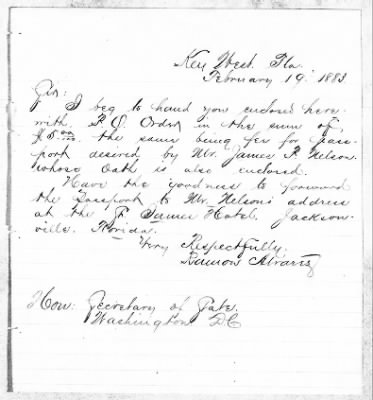 Key West. Fla.
February 19. 1883
Sir:
I beg to hand you enclosed here-
with P. O. Order in the sum of
$5.00 the same being fee for pass-
port desired by Mr. James F. Nelson
whose Oath is also enclosed.
Have the goodness to forward
the Passport to Mr. Nelson's address
at the St. James Hotel. Jackson-
ville. Florida.
Very Respectfully.
Ramon Alvarez
Hon: Secretary of State.
Washington D.C